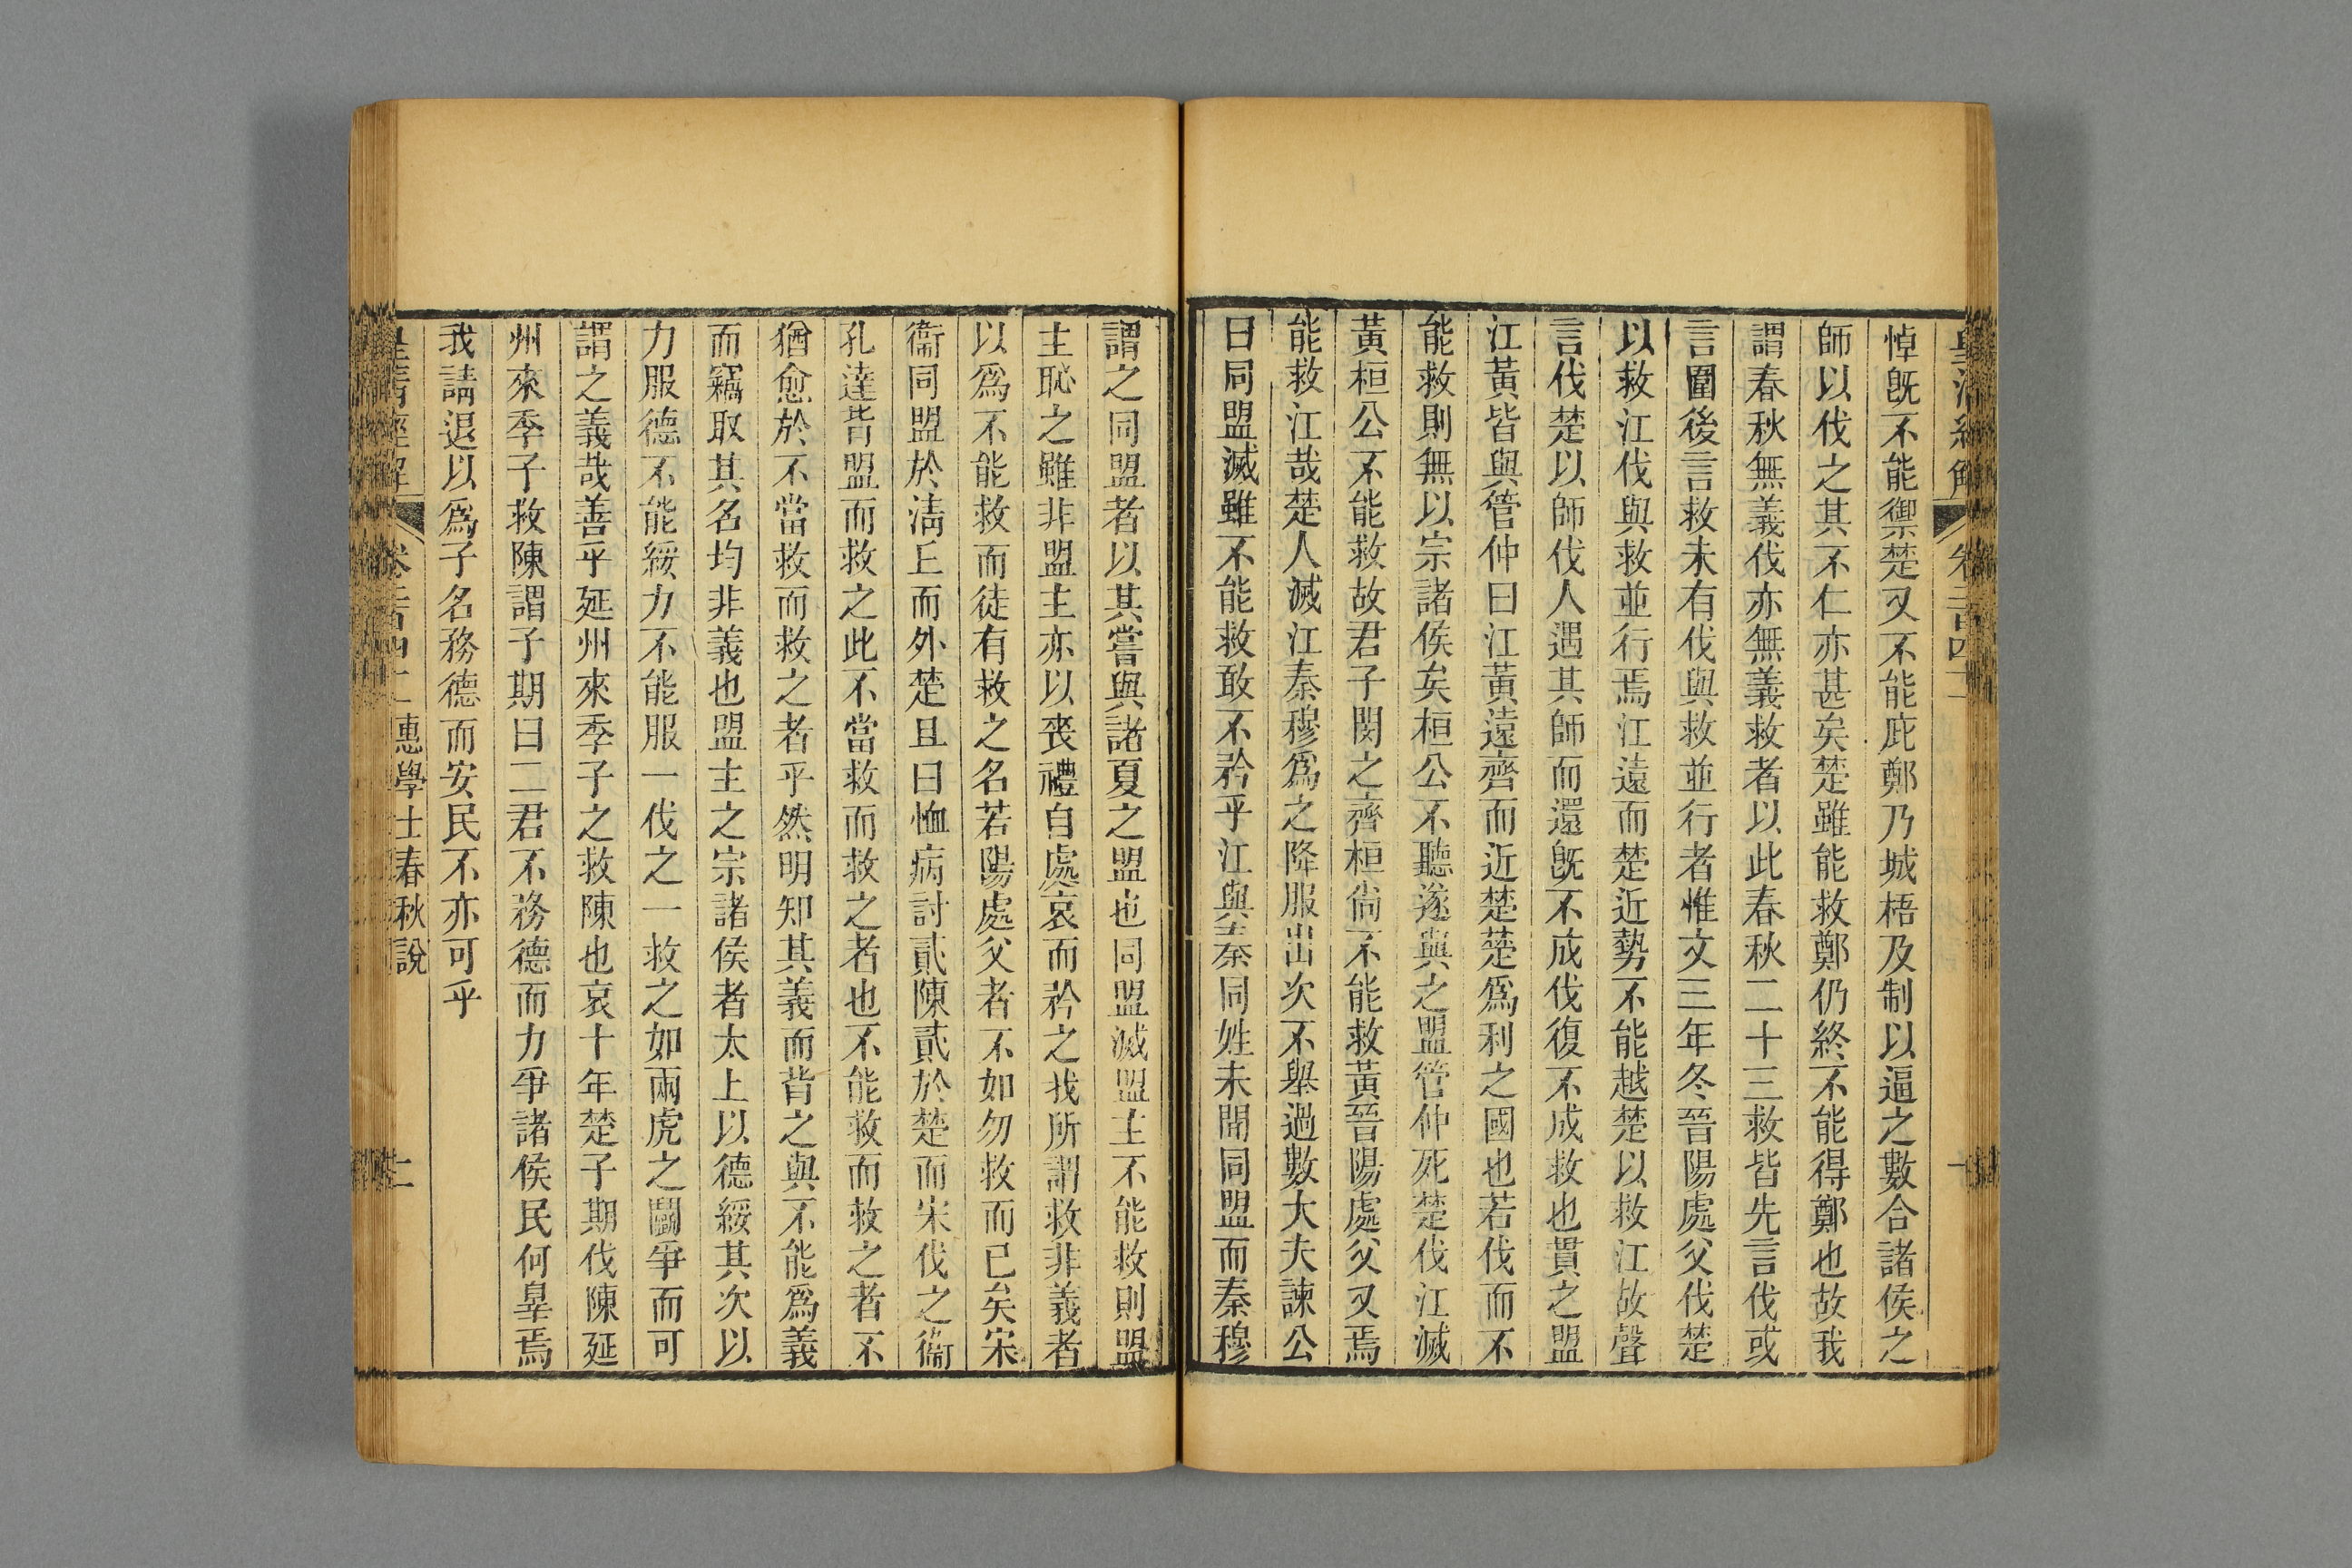 悼旣不能禦楚又不能庇鄭乃城梧及制以逼之數合諸侯之
師以伐之其不仁亦甚矣楚雖能救鄭仍終不能得鄭也故我
謂春秋無義伐亦無義救者以此春秋二十三救皆先言伐或
言圍後言救未有伐與救並行者惟文三年冬晉陽處父伐楚
以救江伐與救並行焉江遠而楚近勢不能越楚以救江故聲
言伐楚以師伐人遇其師而還旣不成伐復不成救也貫之盟
江黃皆與管仲曰江黃遠齊而近楚楚爲利之國也若伐而不
能救則無以宗諸侯矣桓公不聽遂與之盟管仲死楚伐江滅
黃桓公不能救故君子閔之齊桓尙不能救黃晉陽處父又焉
能救江哉楚人滅江秦穆爲之降服出次不舉過數大夫諫公
曰同盟滅雖不能救敢不矜乎江與秦同姓未聞同盟而秦穆
謂之同盟者以其嘗與諸夏之盟也同盟滅盟主不能救則盟
主恥之雖非盟主亦以喪禮自處哀而矜之我所謂救非義者
以爲不能救而徒有救之名若陽處父者不如勿救而已矣宋
衞同盟於淸丘而外楚且曰恤病討貳陳貳於楚而宋伐之衞
孔達背盟而救之此不當救而救之者也不能救而救之者不
猶愈於不當救而救之者乎然明知其義而背之與不能爲義
而竊取其名均非義也盟主之宗諸侯者太上以德綏其次以
力服德不能綏力不能服一伐之一救之如兩虎之鬭爭而可
謂之義哉善乎延州來季子之救陳也哀十年楚子期伐陳延
州來季子救陳謂子期曰二君不務德而力爭諸侯民何辠焉
我請退以爲子名務德而安民不亦可乎
皇清經解 卷二百四十二惠學士春秋說